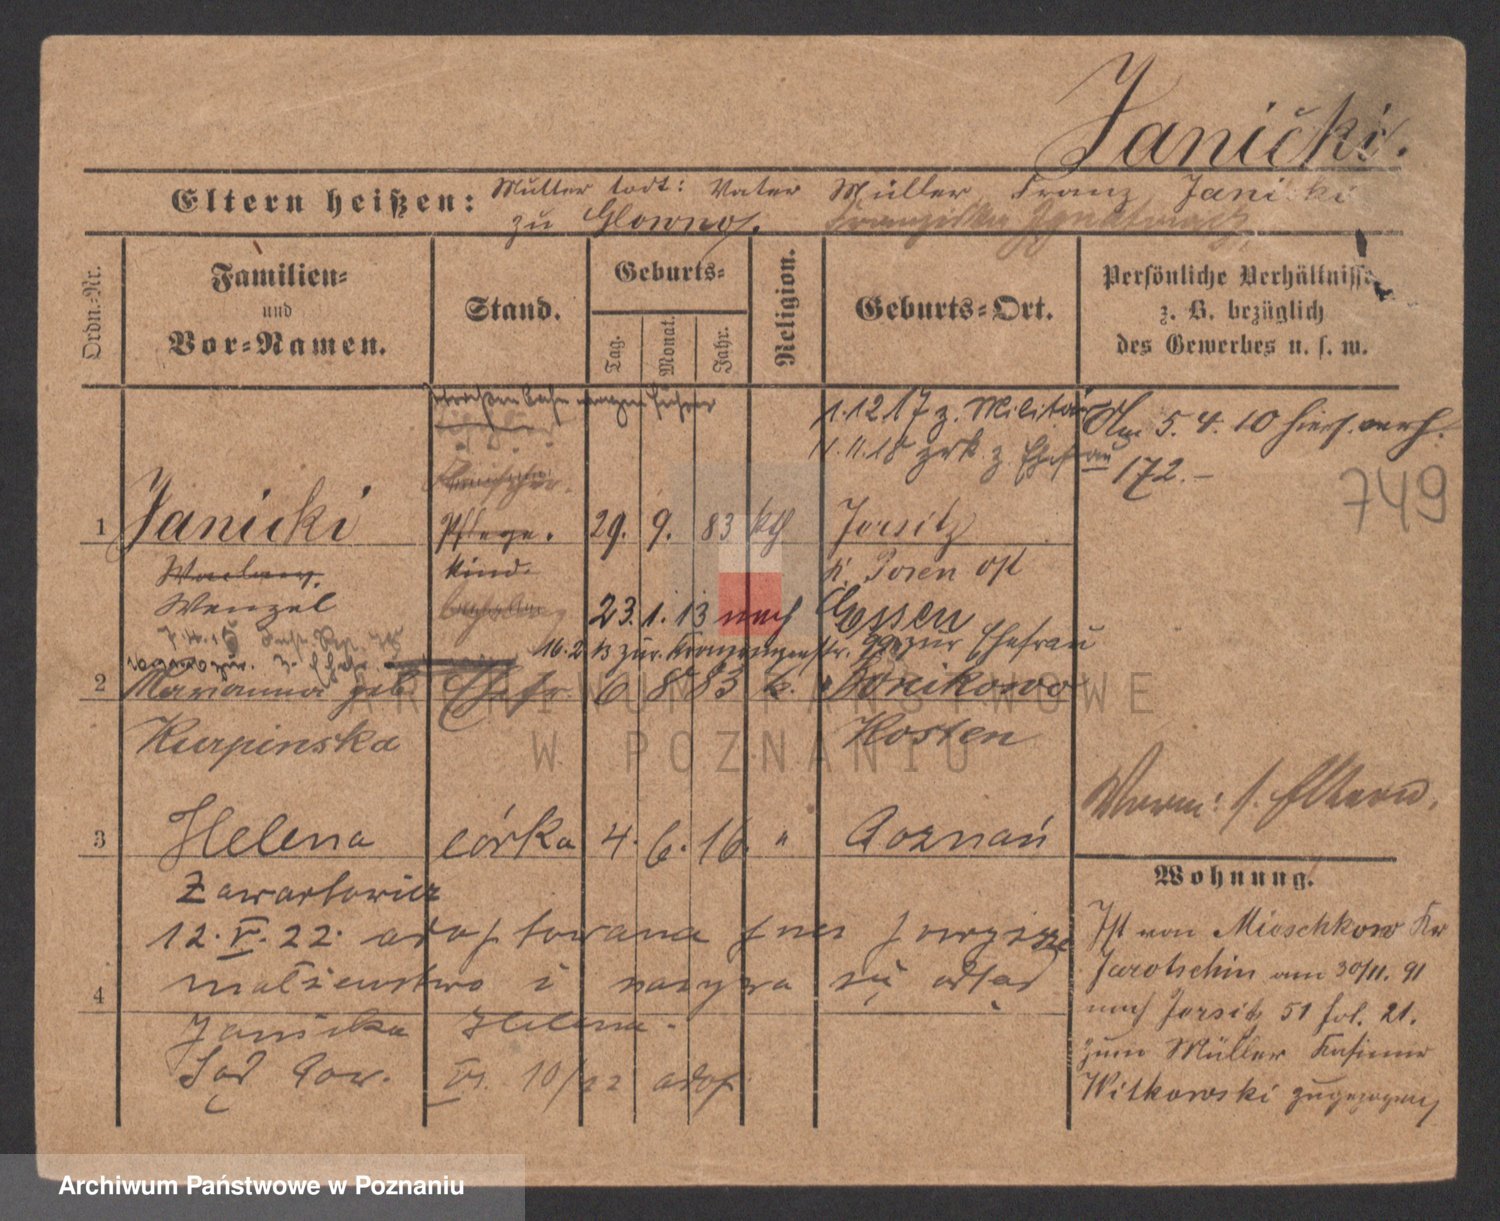 Janicki.
Eltern heißen: Mutter todt: Vater Müller Franz Janicki
zu Glowno.
Ordn.-Nr.
Familien-
und
Vor-Namen.
Stand.
Geburts-
Tag.
Monat.
Jahr.
Religion.
Geburts-Ort.
Persönliche Verhältnisse
z. B. bezüglich
des Gewerbes u. s. w.
1.12 17 z. Militär
11.11.18 zrk. z. Ehefrau
Am 5. 4. 10 hier verh.
172.-
749
1 Janicki Pflege- 29. 9. 83 kth Jersitz
Waclaw. kind. K. Posen Ost
Wenzel 23. 1. 13 nach Essen
16. 2. 13 zur. Kronprinzenstr. 99 zur Ehefrau
2 Marianna geb. Ehefr. 6 8 83 k. Bonikowo
Kurpinska Kosten
3 Helena córka 4. 6. 16. " Poznań
Zawartowicz
12. V. 22. adoptowana przez powyższe
4 małżeństwo i nazywa się odtąd
Janicka Helena.
Sąd Pow. VI. 10/22 adop
Verm: s. Eltern.
Wohnung.
Ist von Mioschkow Kr
Jarotschin am 30/11. 91
nach Jersitz 51 fol. 21.
zum Müller Kasimir
Witkowski zugezogen
ARCHIWUM PAŃSTWOWE
W POZNANIU
Archiwum Państwowe w Poznaniu